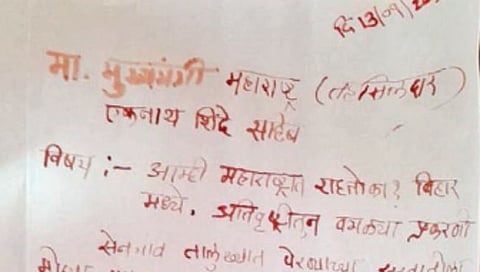 दि 13/09/20
मा. मुख्यमंत्री महाराष्ट्र (तहसिलदार)
एकनाथ शिंदे साहेब
विषय :- आम्ही महाराष्ट्रात राहतो का? बिहार
मध्ये. अतिवृष्टीतुन वगळल्या प्रकरणी
सेनगाव तालुक्यात